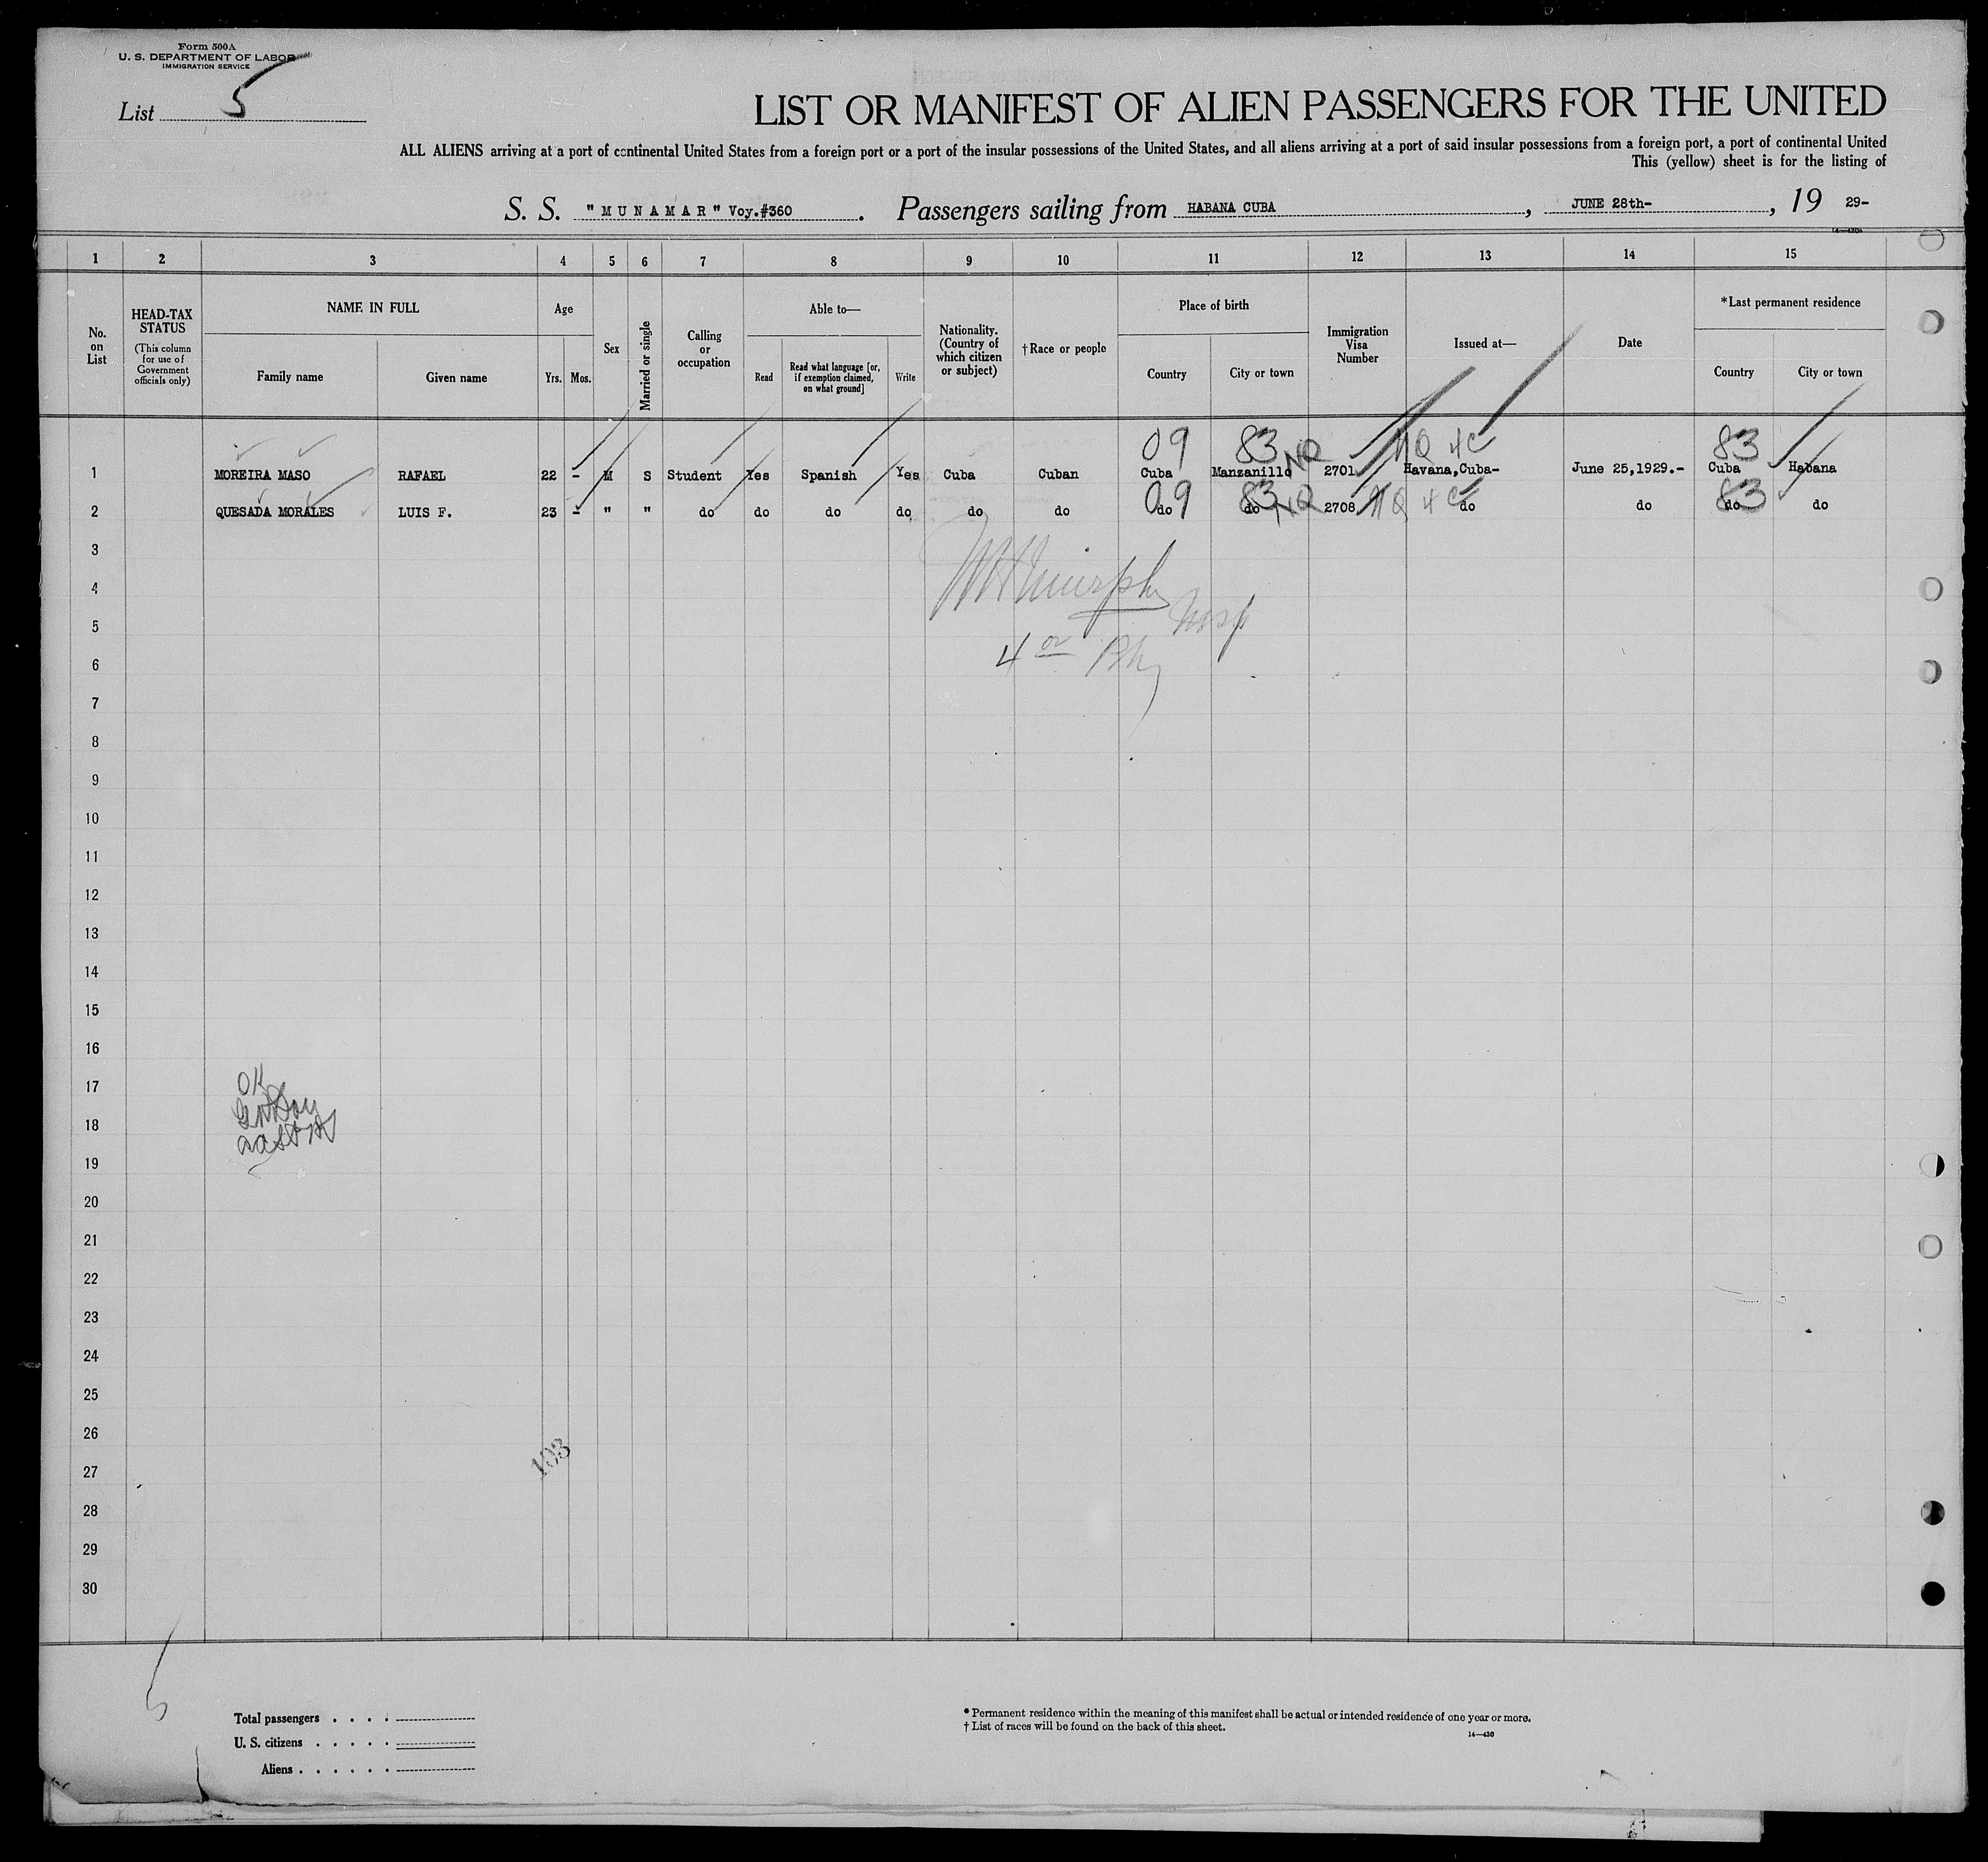 Form 500A
U. S. DEPARTMENT OF LABOR
IMMIGRATION SERVICE
List 5
LIST OR MANIFEST OF ALIEN PASSENGERS FOR THE UNITED
ALL ALIENS arriving at a port of continental United States from a foreign port or a port of the insular possessions of the United States, and all aliens arriving at a port of said insular possessions from a foreign port, a port of continental United
This (yellow) sheet is for the listing of
S. S. "MUNAMAR" Voy.#360 . Passengers sailing from HABANA CUBA , JUNE 28th- , 19 29-
1 2 3 4 5 6 7 8 9 10 11 12 13 14 15
No. on List
HEAD-TAX STATUS
(This column for use of Government officials only)
NAME IN FULL
Family name
Given name
Age
Yrs.
Mos.
Sex
Married or single
Calling or occupation
Able to—
Read
Read what language [or, if exemption claimed, on what ground]
Write
Nationality. (Country of which citizen or subject)
†Race or people
Place of birth
Country
City or town
Immigration Visa Number
Issued at—
Date
*Last permanent residence
Country
City or town
09 83 NQ NQ 4C 83
1 MOREIRA MASO RAFAEL 22 - M S Student Yes Spanish Yes Cuba Cuban Cuba Manzanillo 2701 Havana,Cuba- June 25,1929.- Cuba Habana
09 83 NQ NQ 4C 83
2 QUESADA MORALES LUIS F. 23 - " " do do do do do do do do 2708 do do do do
3
4
5
6
7
8
9
10
11
12
13
14
15
16
17
18
19
20
21
22
23
24
25
26
27
28
29
30
Murphy
Insp
4
OK
103
5
Total passengers . . . .
U. S. citizens . . . . .
Aliens . . . . . .
* Permanent residence within the meaning of this manifest shall be actual or intended residence of one year or more.
† List of races will be found on the back of this sheet.
14—430